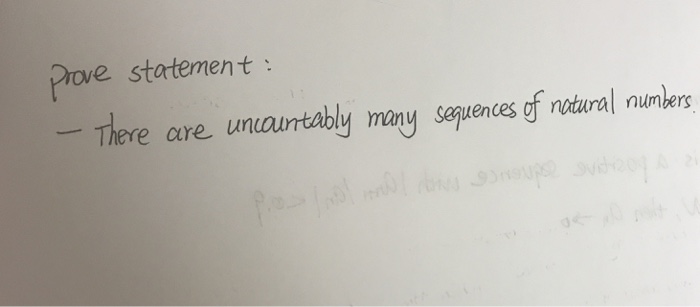 Prove statement :
- There are uncountably many sequences of natural numbers.